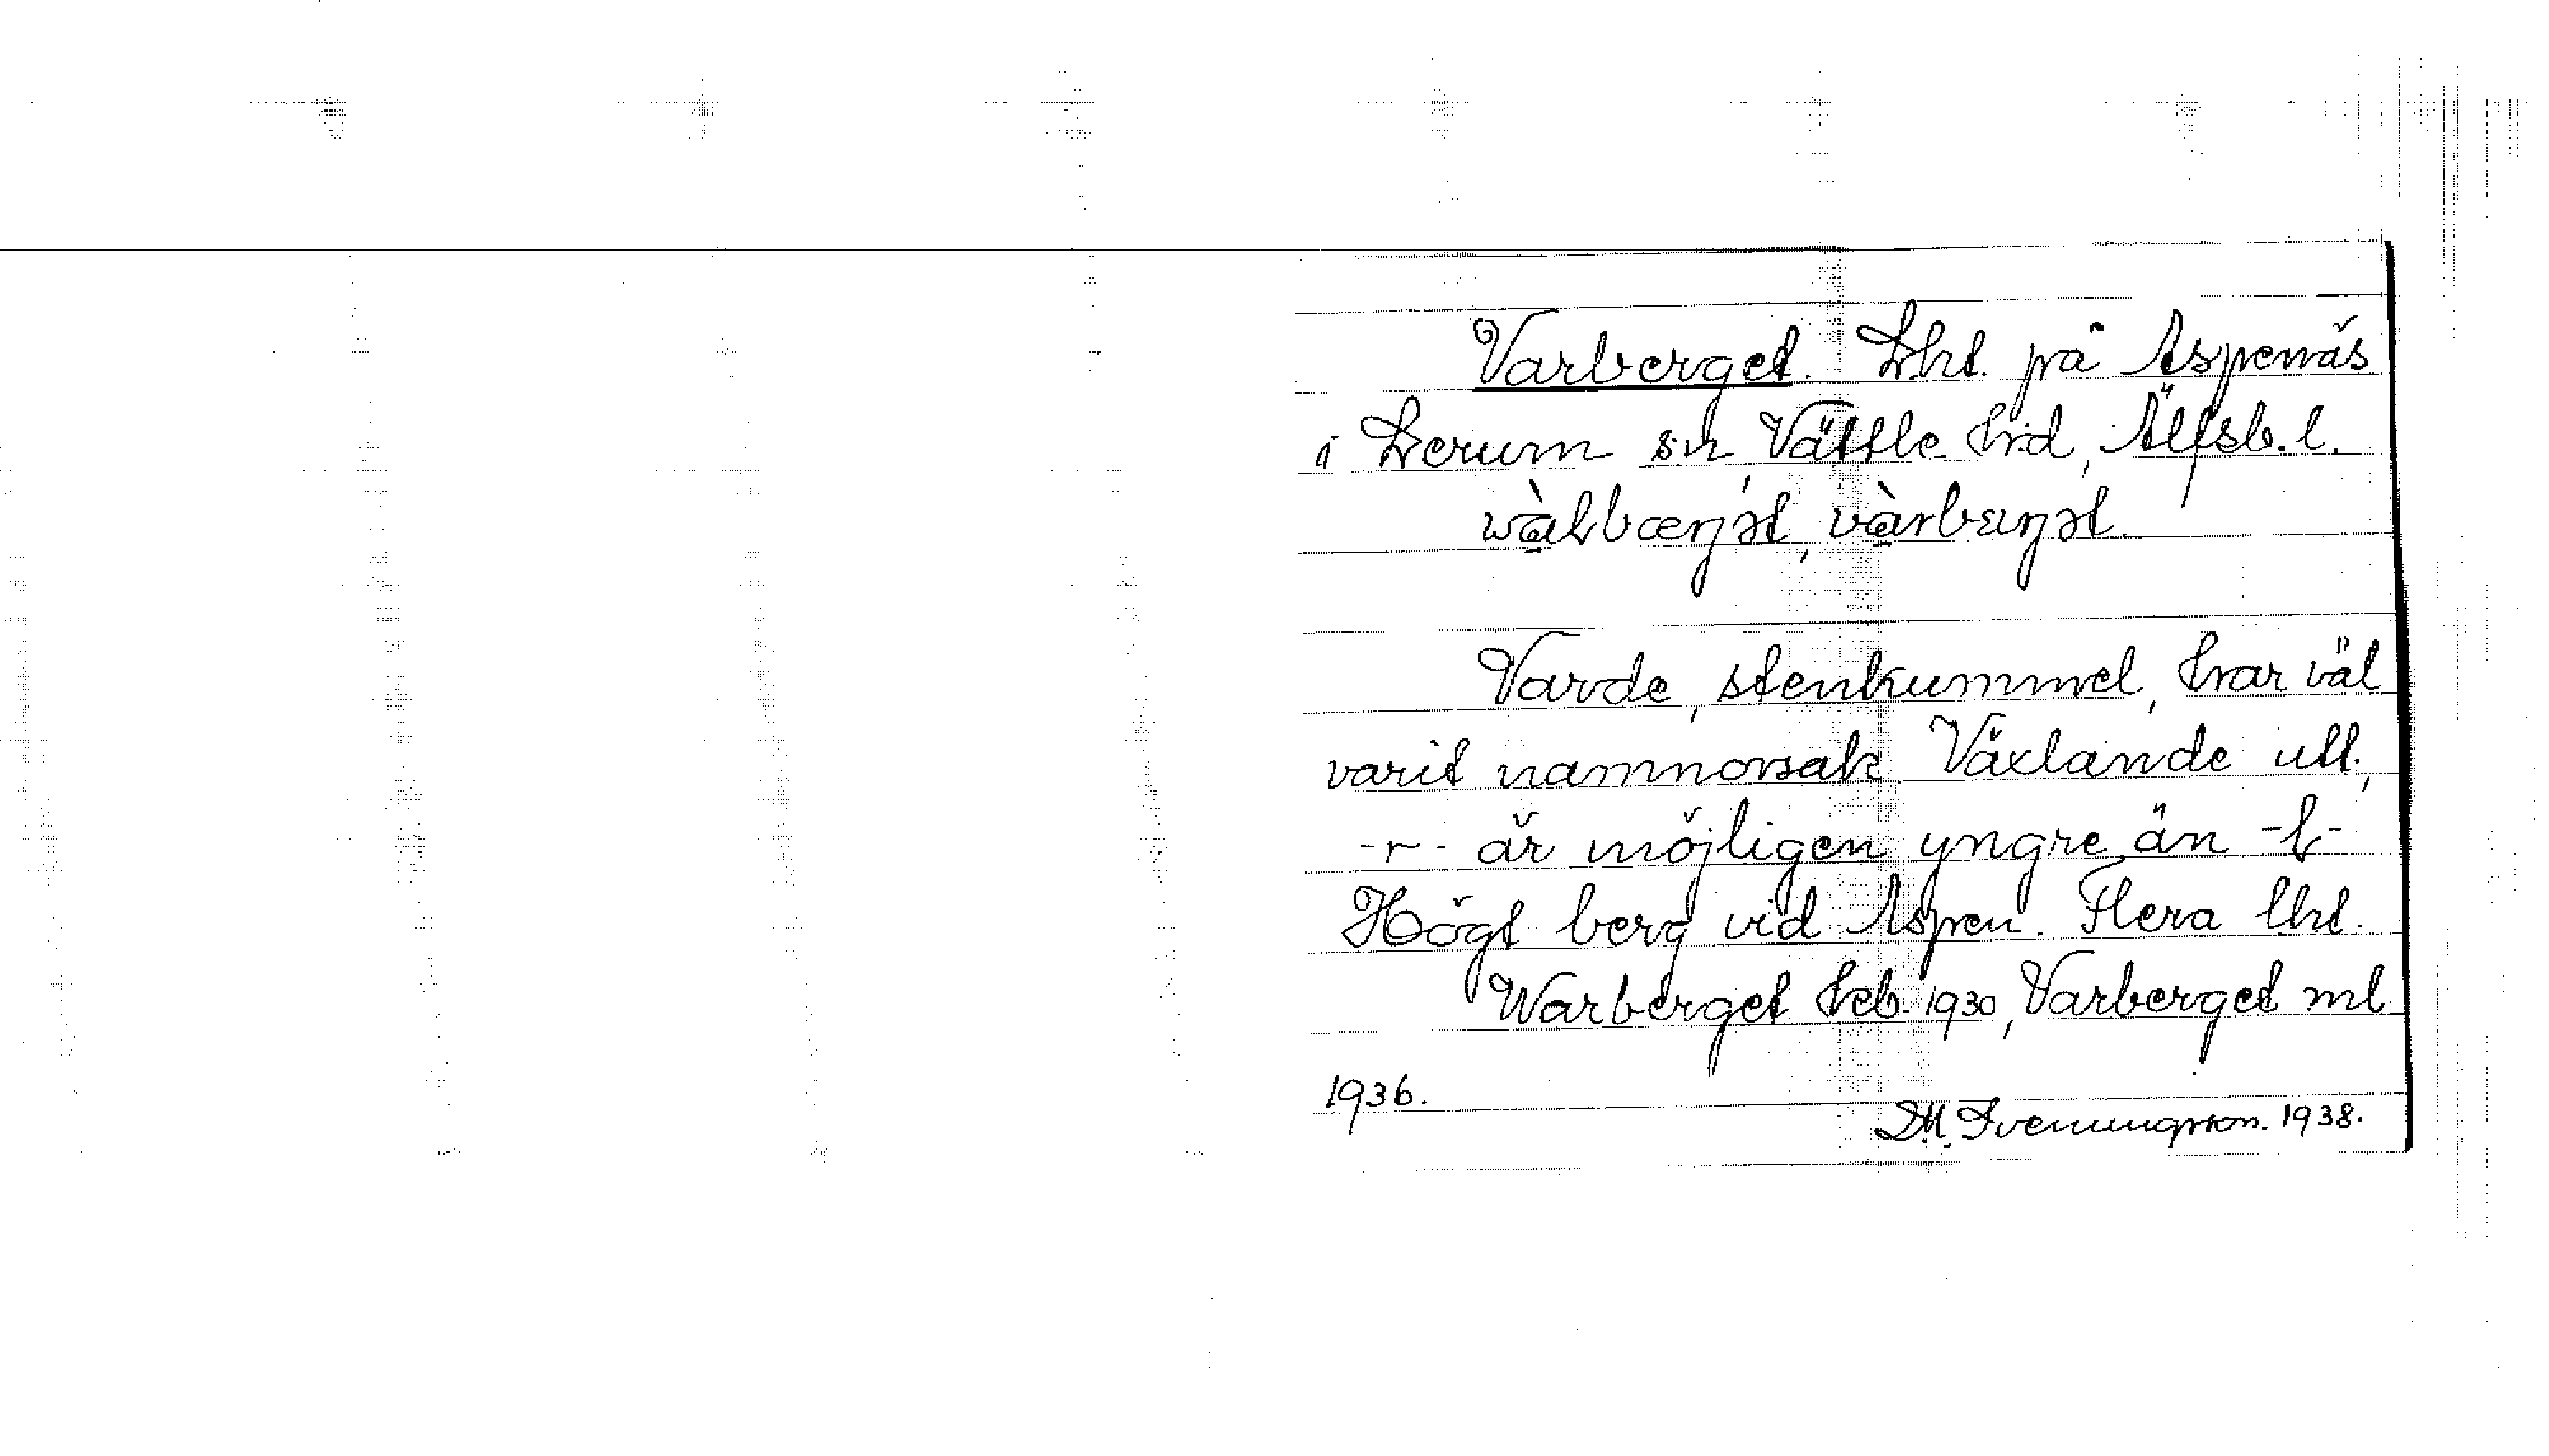 Varberget. Lht. på Aspenäs
i Lerum sn, Vättle hd, Älfsb. l.
Varde, stenkummel, har väl
varit namnorsak. Växlande utt.,
-r- är möjligen yngre än -ł-
Högt berg vid Aspen. Flera lht.
Warberget Jeb. 1930, Varberget ml
1936.
D.M. Sveningsson. 1938.